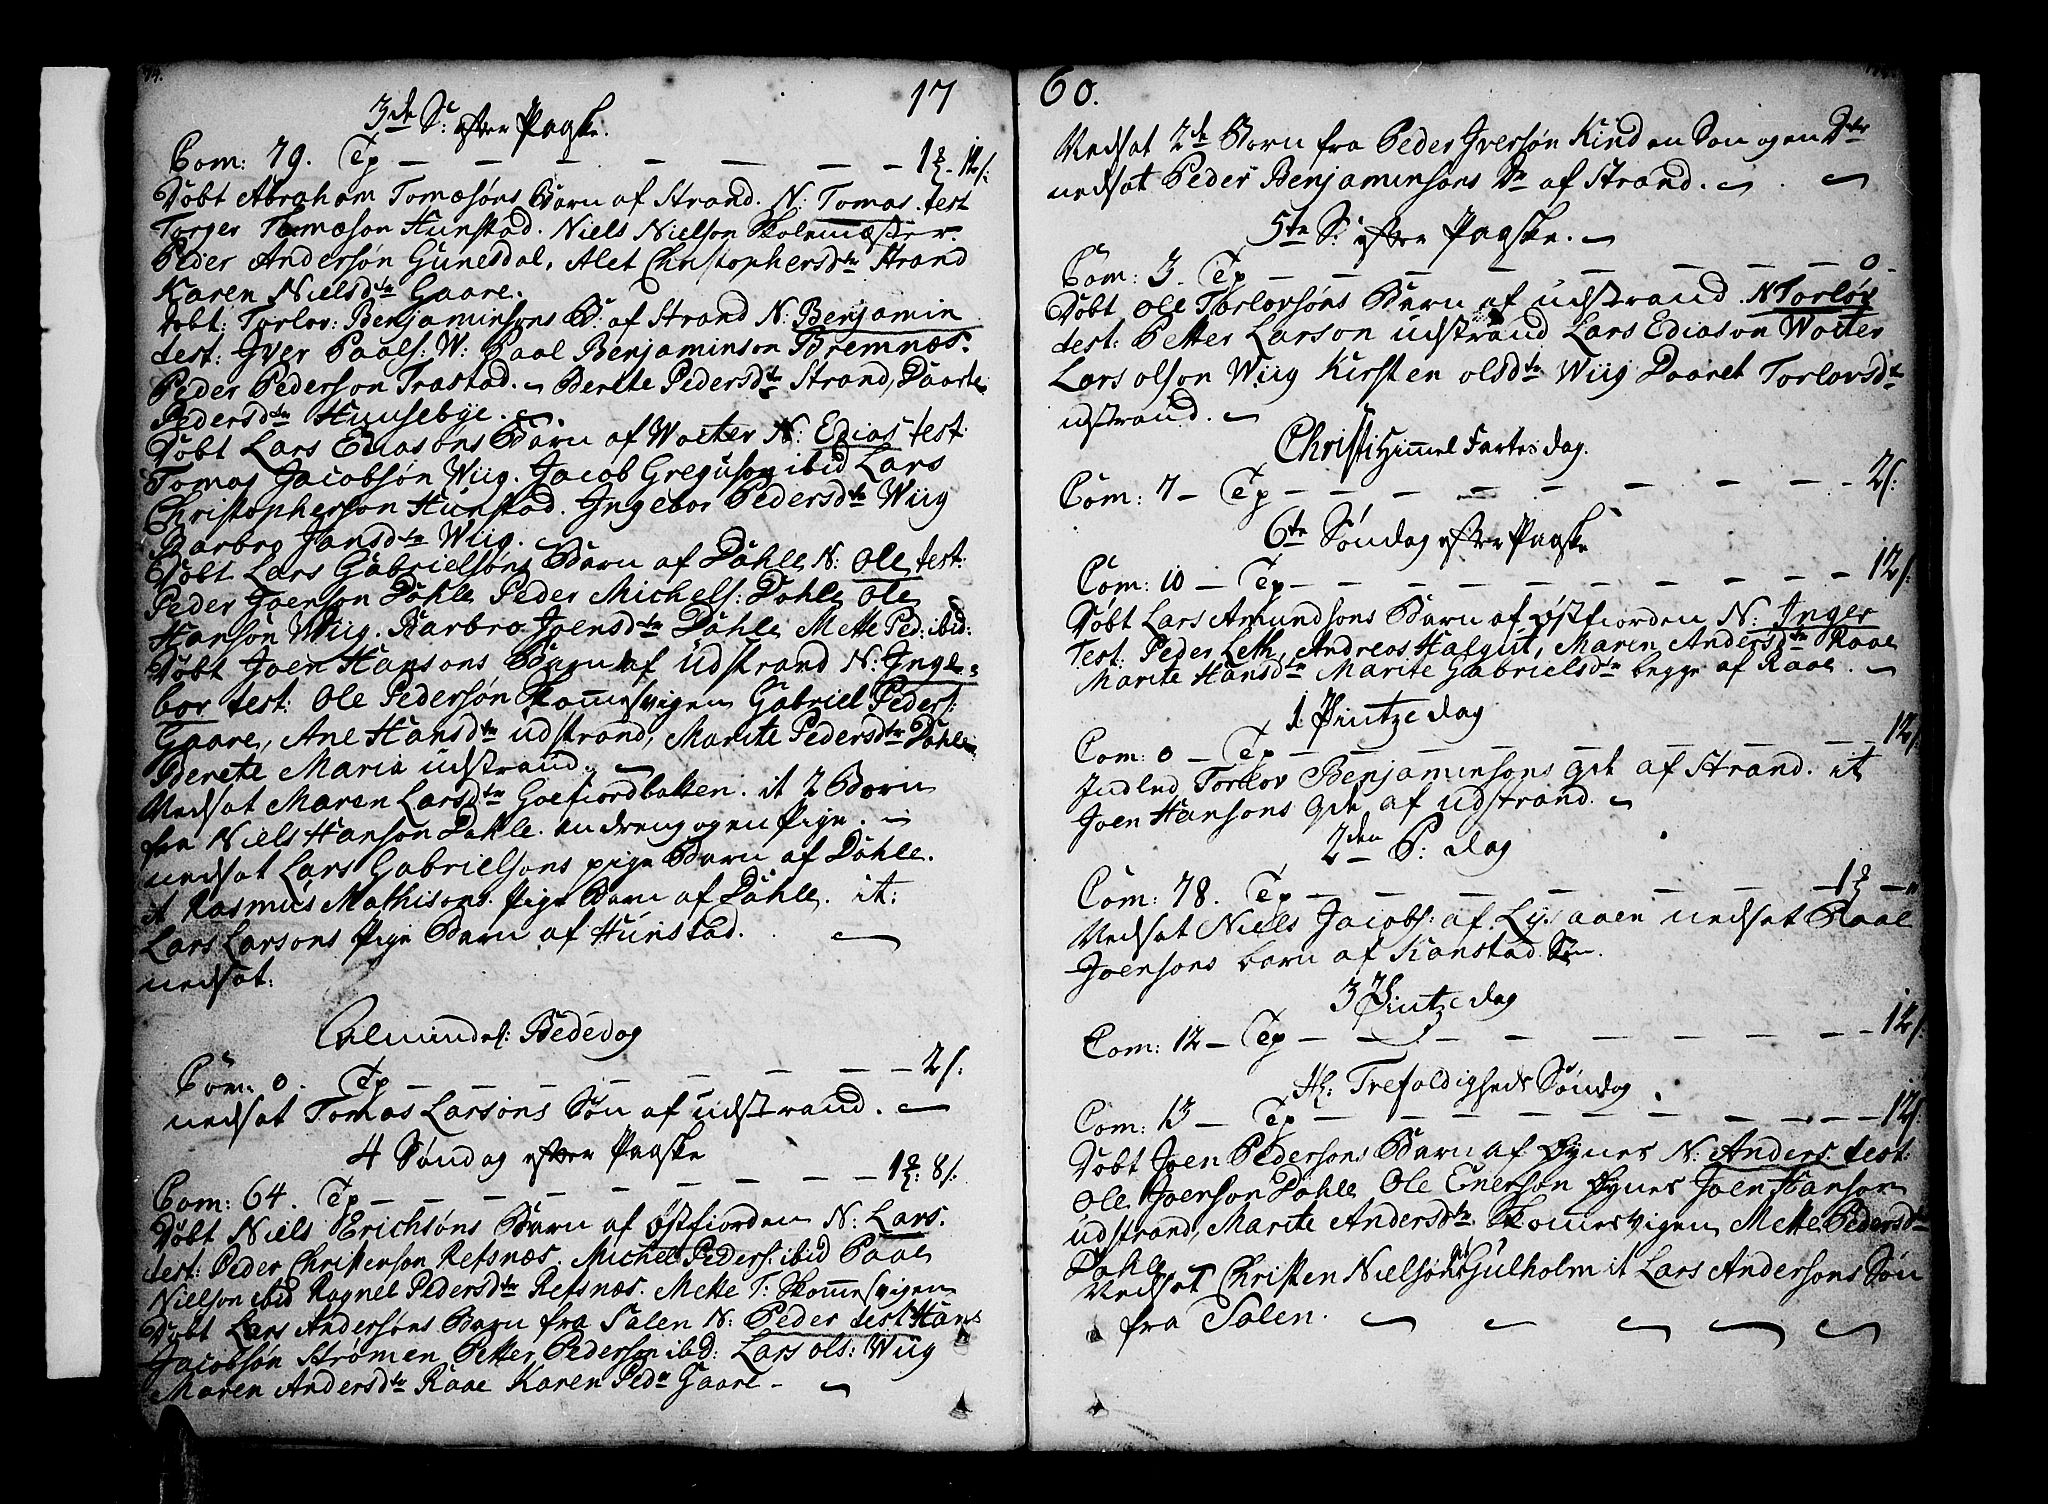 17
3de S: efter Paaske.
Com: 79. Tp — — — — — — 1 12 s:
Döbt Abraham Tomæsöns Barn af Strand. N: Tomas. test
Torger Tomæson Hunstad. Niels Nielson Skolemæster.
Peder Andersön Gunesdal, Alet Christophersdtr Strand
Karen Nielsdtr Gaare.
Döbt: Torlov: Benjaminsons B: af Strand N: Benjamin
test: Jver Paals: W: Paal Benjaminson Bremnæs.
Peder Pederson Trastad. Berete Pedersdtr Strand, Daarte
Pedersdtr Huusebye.
Döbt Lars Ediasöns Barn af Wolter N: Edias test:
Tomas Jacobsön Wiig. Jacob Greguson ibid Lars
Christopherson Hunstad. Ingebor Pedersdtr Wiig
Barbro Jansdtr Wiig.
Döbt Lars Gabrielsöns Barn af Döhle N: Ole test:
Peder Joenson Döhle Peder Michels: Döhle Ole
Hansön Wiig. Barbro Joensdtr Döhle Mette Ped: ibid:
Döbt Joen Hansons Barn af udstrand N: Inge-
bor test: Ole Pedersön Skomesvigen Gabriel Peders:
Gaare, Ane Hansdtr udstrand, Marite Pedersdtr Döhle
Berete Maria udstrand.
Nedsat Maren Larsdtr Goefiordbotten. it 2 Börn
fra Niels Hanson Döhle. en dreng og en Pige.
nedsat Lars Gabrielsons pige Barn af Döhle.
it Rasmus Mathisons Pige Barn af Döhle. it:
Lars Larsons Pige Barn af Hunstad.
nedsat:
Almindel: Bededag
Com: 0. Tp — — — — — — 2 s:
nedsat Tomas Larsöns Sön af udstrand.
4 Söndag efter Paaske
Com: 64. Tp — — — — — — 1 8 s:
Döbt Niels Erichsöns Barn af Østfiorden N: Lars.
test: Peder Christenson Refsnæs. Michel Peders: ibid Paal
Nielson ibid Ragnel Pedersdtr Refsnæs. Mette T: Skomesvigen
Döbt Lars Andersöns Barn fra Salen N: Peder test Hans
Jacobsön Strömen Petter Pederson ibid: Lars ols: Wiig
Maren Andersdtr Raae Karen Pedr Gaare
60.
Nedsat 2de Börn fra Peder Jversön Kind en Sön og en Dtr
nedsat Peder Benjaminsons Dr af Strand.
5te S: efter Paaske.
Com: 3. Tp — — — — — — 0
Döbt Ole Torlovsöns Barn af udstrand N Torlov
test: Petter Larson udstrand Lars Ediason Wolter
Lars olson Wiig Kirsten olsdtr Wiig Daaret Torlovsdtr
udstrand.
Christi Himmel Fartes dag.
Com: 7 — Tp — — — — — — 2 s:
6te Söndag efter Paaske
Com: 10 — Tp — — — — — — 12 s:
Döbt Lars Amundsöns Barn af Østfiorden N: Inger
Test: Peder Leth, Andreas Hafgut, Maren Andersdtr Raae
Marite Hansdtr Marite Gabrielsdtr begge af Raae
1 Pintze dag
Com: 0 — Tp — — — — — — 12 s:
Indled Torlov Benjaminsons Qde af Strand. it
Joen Hansons Qde af udstrand.
2den P: dag
Com: 78. Tp — — — — — — 1
Nedsat Niels Jacobs: af Lysaaen nedsat Paal
Joensons barn af Kanstad. Sön.
3 Pintze dag
Com: 12 — Tp — — — — — — 12 s:
Hl: Trefoldigheds Söndag
Com: 13 — Tp — — — — — — 12 s:
Döbt Joen Pedersons Barn af Evnes N: Anders test:
Ole Joenson Döhle Ole Enerson Evnes Joen Hanson
udstrand, Marite Andersdtr Skomesvigen Mette Pedersdtr
Döhle
Nedsat Christen Nielsön Gulholm it Lars Andersons Sön
fra Salen.